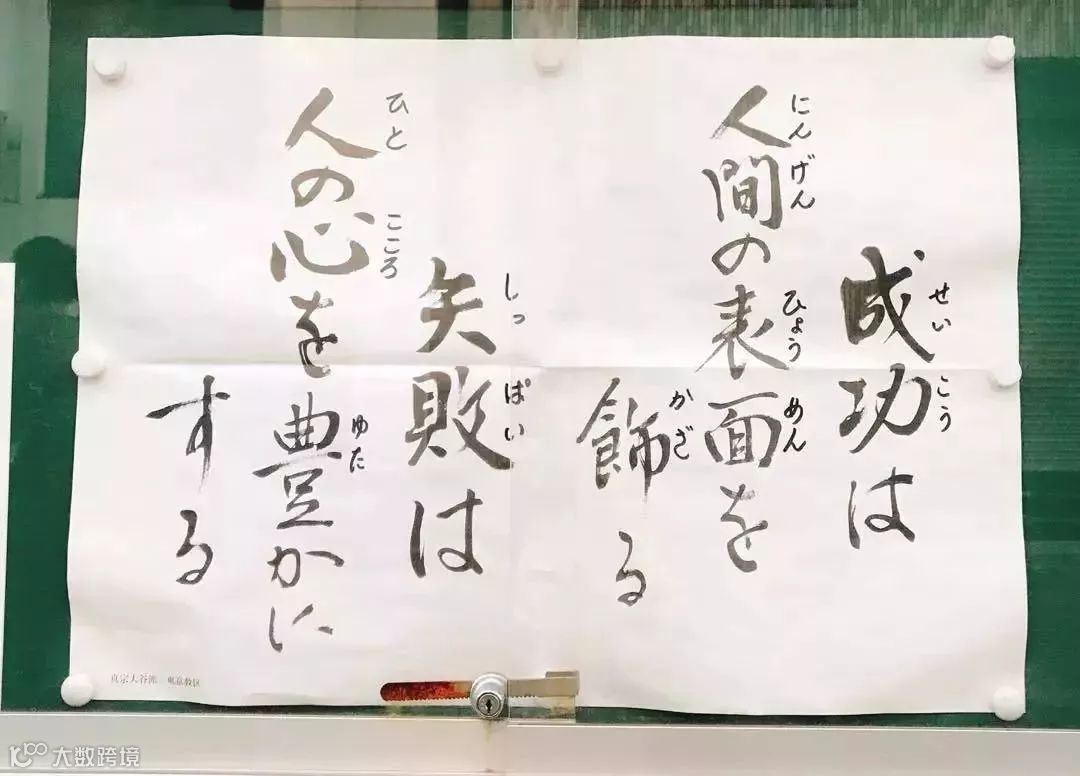 成功は
せいこう
人間の表面を
にんげん ひょうめん
飾る
かざ
失敗は
しっぱい
人の心を豊かに
ひと こころ ゆた
する
真宗大谷派 東京教区
大数跨境